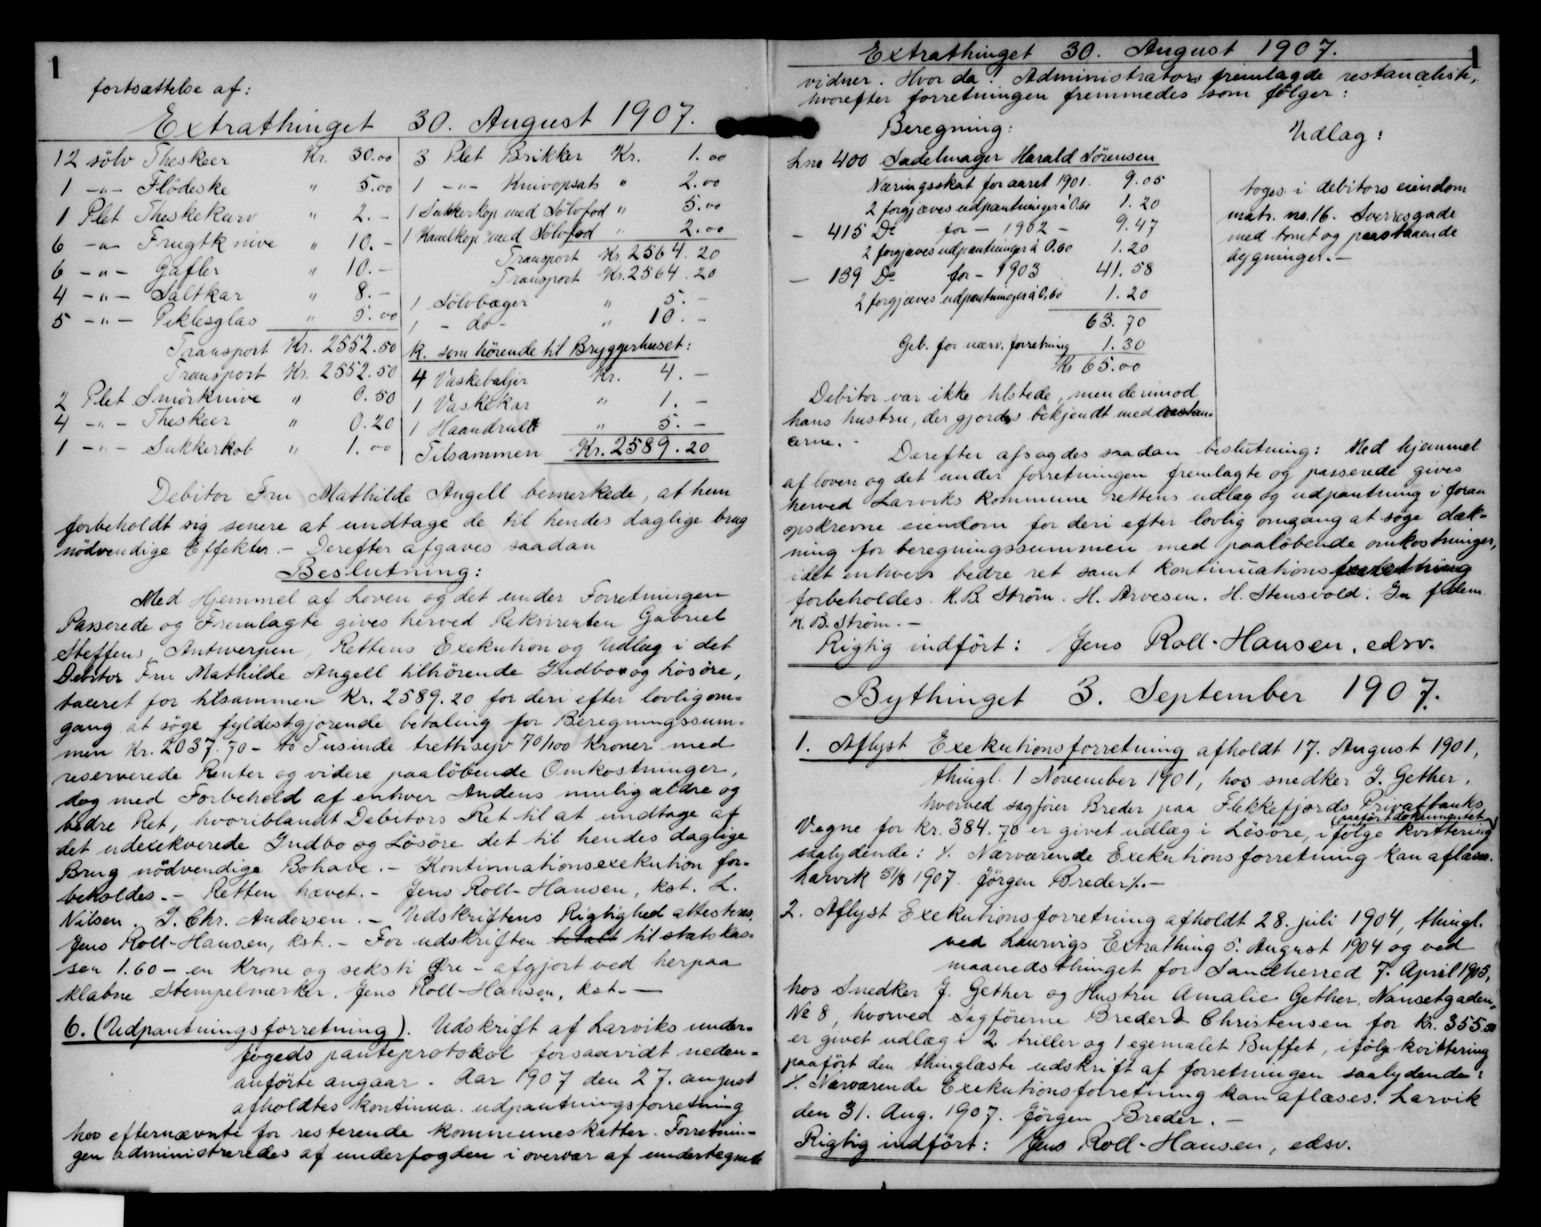 1
fortsættelse af:
Extrathinget 30. August 1907.
12 sölv Theskeer Kr. 30.00
1 -"- Flödeske " 5.00
1 Plet Theskekurv " 2.-
6 -"- Frugtknive " 10.-
6 -"- Gafler " 10.-
4 -"- Saltkar " 8.-
5 -"- Piklesglas " 5.00
Transport Kr. 2552.50
Transport Kr. 2552.50
2 Plet Smörknive " 0.50
4 -"- Theskeer " 0.20
1 -"- Sukkerkob " 1.00
3 Plet Brikker Kr. 1.00
1 -"- Knivopsats " 2.00
1 Sukkerkop med Sölvfod " 5.00
1 Kanelkop med Sölvfod " 2.00
Transport Kr 2564.20
Transport Kr. 2564.20
1 Sölvbæger " 5.-
1 - do - " 10.-
K. som hörende til Bryggerhuset:
4 Vaskebaljer Kr. 4.-
1 Vaskekar " 1.-
1 Haandrulle " 5.-
Tilsammen Kr. 2589.20
Debitor Fru Mathilde Angell bemerkede, at hun
forbeholdt sig senere at undtage de til hendes daglige brug
nödvendige Effekter. - Derefter afgaves saadan
Beslutning:
Med Hjemmel af Loven og det under Forretningen
Passerede og Fremlagte gives herved Rekvirenten Gabriel
Steffens, Antwerpen, Rettens Exekution og Udlæg i det
Debitor Fru Mathilde Angell tilhörende Indbo og lösöre,
taxeret for tilsammen Kr. 2589.20 for deri efter lovlig om-
gang at söge fyldestgjorende betaling for Beregningssum-
men Kr. 2037.70 - to Tusinde trettisyv 70/100 Kroner med
reserverede Renter og videre paalöbende Omkostninger,
dog med Forbehold af enhver Andens mulig ældre og
bedre Ret, hvoriblandt Debitors Ret til at undtage af
det udexekverede Indbo og Lösöre det til hendes daglige
Brug nödvendige Bohave. - Kontinuationsexekution for-
beholdes. - Retten hævet. - Jens Roll-Hansen, kst. L.
Nilsen. J. Chr. Andersen. - Udskriftens Rigtighed attesteres.
Jens Roll-Hansen, kst. - For udskriften betalt til statskas-
sen 1.60 - en Krone og seksti Øre - afgjort ved herpaa
klæbne Stempelmærker. Jens Roll-Hansen, kst. -
6. (Udpantningsforretning). Udskrift af Larviks under-
fogeds panteprotokol forsaavidt neden-
anförte angaar. Aar 1907 den 27. august
afholdtes kontinua. udpantningsforretning
hos efternævnte for resterende kommuneskatter. Forretnin-
gen administreredes af underfogden i overvær af undertegnede
Extrathinget 30. August 1907.
1
vidner. Hvor da: Administrator fremlagde restanceliste,
hvorefter forretningen fremmedes som følger:
Beregning:
Lno 400 Sadelmager Harald Sörensen
Næringsskat for aaret 1901. 9.05
2 forgjæves udpantninger à 0.60 1.20
- 415 Do for - 1902 - 9.47
2 forgjæves udpantninger à 0.60 1.20
- 139 Do for - 1903 41.58
2 forgjæves udpantninger à 0.60 1.20
63.70
Geb. for nærv. forretning 1.30
Kr 65.00
Udlæg:
toges i debitors eiendom
matr. no. 16. Sverresgade
med tomt og paastaaende
bygninger. -
Debitor var ikke tilstede, men derimod
hans hustru, der gjordes bekjendt med restan-
cerne. -
Derefter afsagdes saadan beslutning: Med hjemmel
af loven og det under forretningen fremlagte og passerede gives
herved Larviks kommune rettens udlæg og udpantning i foran
opskrevne eiendom for deri efter lovlig omgang at söge dæk-
ning for beregningssummen med paaløbende omkostninger,
idet enhvers bedre ret samt kontinuationsforretning
forbeholdes. K.B. Strøm. H. Arvesen. H. Stensvold. In fidem
K.B. Strøm. -
Rigtig indfört: Jens Roll-Hansen, edsv.
Bythinget 3. September 1907.
1. Aflyst Exekutionsforretning afholdt 17. August 1901,
thingl. 1 November 1901, hos snedker J. Gether,
hvorved sagfører Breder paa Flekkefjords Privatbanks
Vægne for Kr. 384.70 er givet udlæg i Lösöre, ifölge kvittering
(paafört dokumentet)
saalydende: ⁒. Nærværende Exekutionsforretning kan aflæses.
Larvik 31/8 1907. Jörgen Breder ⁒. -
2. Aflyst Exekutionsforretning afholdt 28. juli 1904, thingl.
ved Laurvigs Extrathing 5. August 1904 og ved
maanedsthinget for Sandherred 7. April 1905,
hos Snedker J. Gether og Hustru Amalie Gether, Nansetgaden
No 8, hvorved sagförerne Breder & Christensen for Kr. 355.50
er givet udlæg i 2 triller og 1 egemalet Buffet, ifölge kvittering
paafört den thinglæste udskrift af forretningen saalydende:
⁒. Nærværende Exekutionsforretning kan aflæses. Larvik
den 31. Aug. 1907. Jörgen Breder. -
Rigtig indfört: Jens Roll-Hansen, edsv.